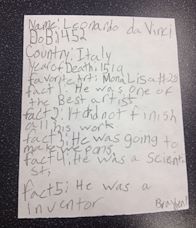 Name: Leonardo da Vinci
DoB1452
Country: Italy
Year of Death: 1519
favorite Art: Mona Lisa
fact 1: He was one of
the Best artist
fact2: It did not finish
all his work
fact3: He was going to
make weapons
fact4: He was a Scient
st,
Fact5: He was a
inventor